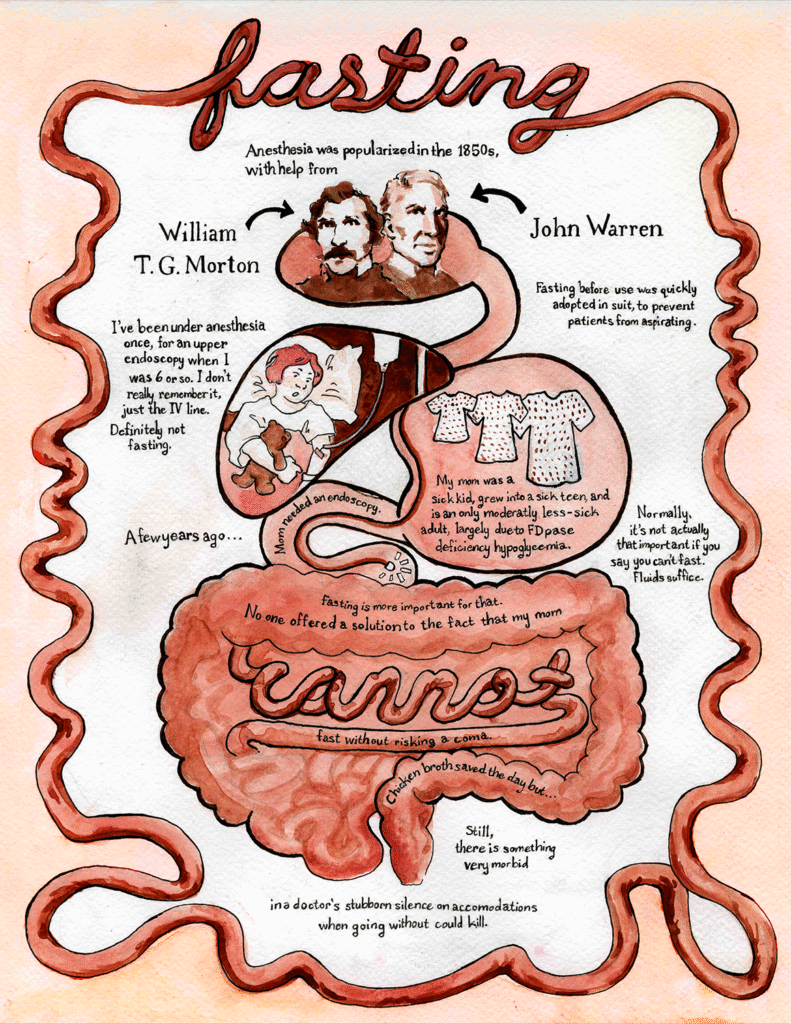 fasting
Anesthesia was popularized in the 1850s,
with help from
William
T. G. Morton
John Warren
Fasting before use was quickly
adopted in suit, to prevent
patients from aspirating.
I've been under anesthesia
once, for an upper
endoscopy when I
was 6 or so. I don't
really remember it,
just the IV line.
Definitely not
fasting.
A few years ago...
Mom needed an endoscopy.
My mom was a
sick kid, grew into a sick teen, and
is an only moderatly less-sick
adult, largely due to FDPase
deficiency hypoglycemia.
Normally,
it's not actually
that important if you
say you can't fast.
Fluids suffice.
Fasting is more important for that.
No one offered a solution to the fact that my mom
cannot
fast without risking a coma.
Chicken broth saved the day but...
Still,
there is something
very morbid
in a doctor's stubborn silence on accomodations
when going without could kill.